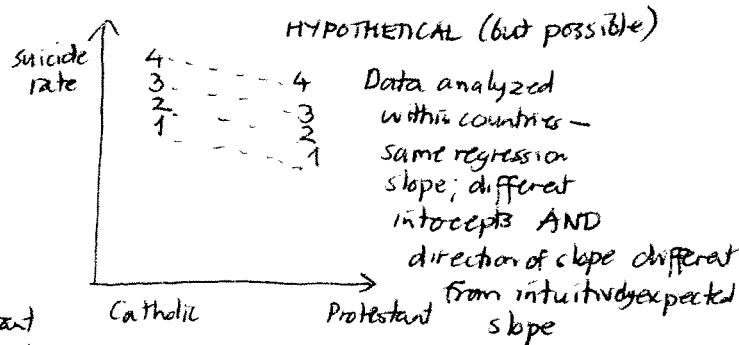 HYPOTHETICAL (but possible)
suicide
rate
4 4
3 3
2 2
1 1
Data analyzed
within countries —
same regression
slope; different
intercepts AND
direction of slope different
from intuitively expected
slope
Catholic Protestant